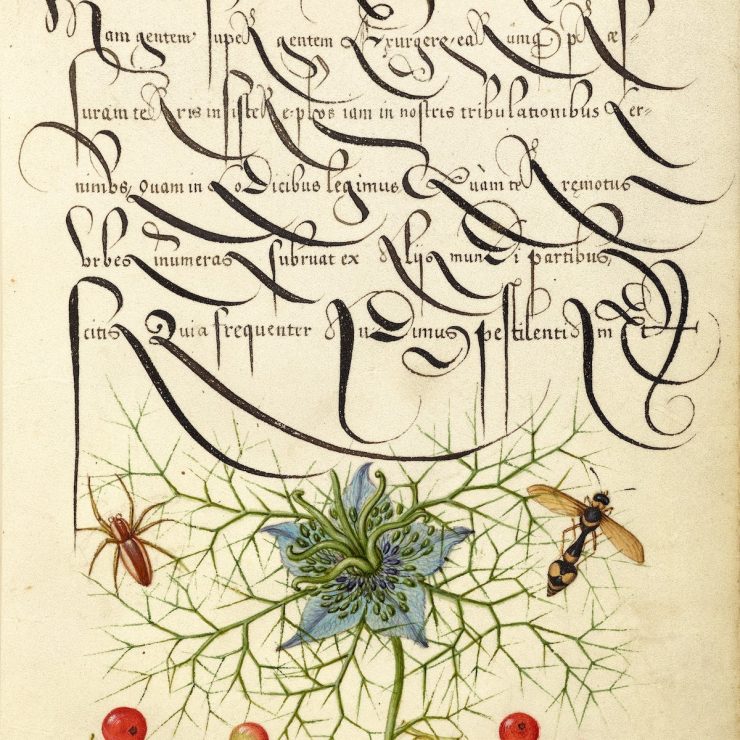 Nam gentem super gentem Exurgere, earumq; præs
suram terris insistere, plus iam in nostris tribulationibus Cer=
nimus, Quam in Codicibus legimus Quàm terręmotus
Vrbes innumeras subruat ex alijs mundi partibus,
scitis Quia frequenter audiuimus pestilentiam Et